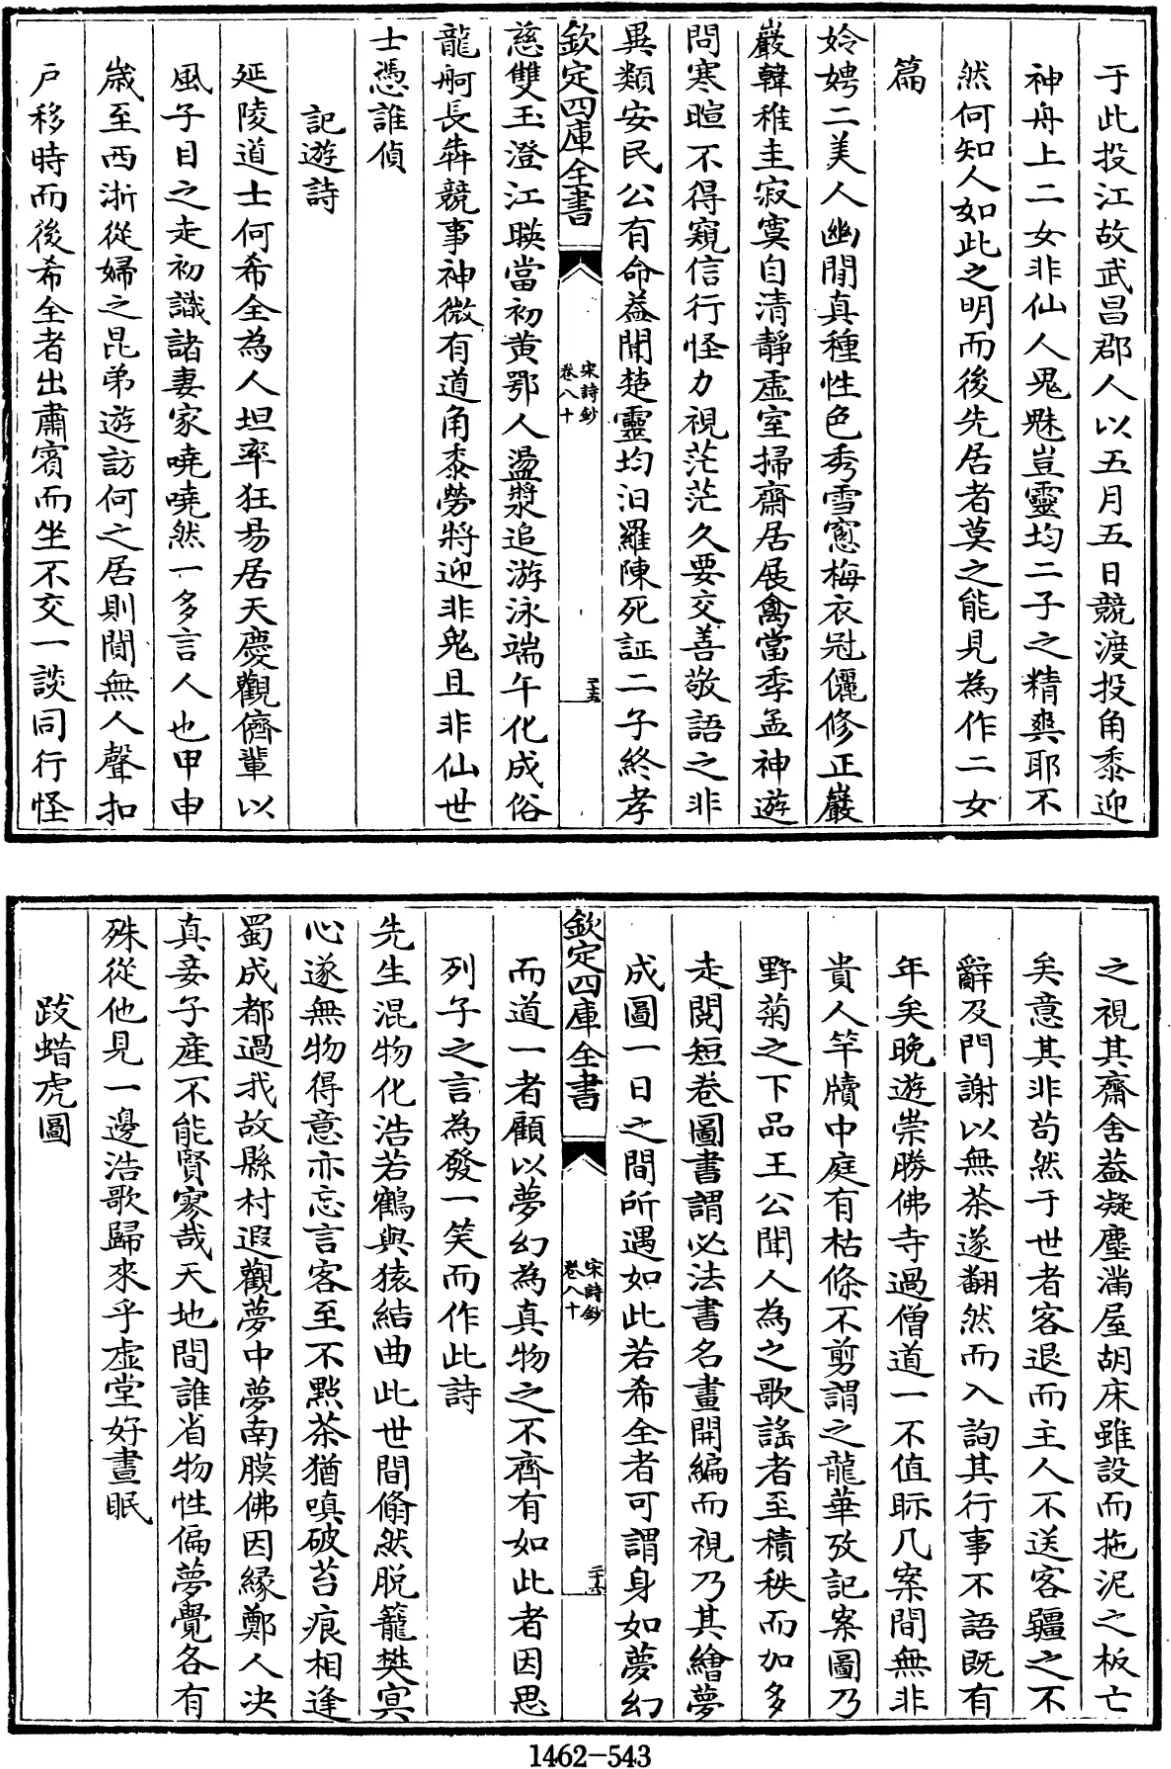 于此投江故武昌郡人以五月五日競渡投角黍迎
神舟上二女非仙人鬼魅豈靈均二子之精爽耶不
然何知人如此之明而後先居者莫之能見為作二女
篇
姈娉二美人幽閒真種性色秀雪窻梅衣冠儷修正巖
巖韓稚圭寂寞自清靜虛室掃齋居展禽當季孟神遊
問寒暄不得窺信行怪力視茫茫久要交善敬語之非
異類安民公有命益聞楚靈均汨羅陳死証二子終孝
欽定四庫全書
宋詩鈔
卷八十
二十五
慈雙玉澄江暎當初黄鄂人盪漿追游泳端午化成俗
龍舸長犇競事神微有道角黍勞將迎非鬼且非仙世
士憑誰偵
記遊詩
延陵道士何希全為人坦率狂易居天慶觀儕輩以
風子目之走初識諸妻家嘵嘵然一多言人也甲申
歲至西浙從婦之昆弟遊訪何之居則閴無人聲扣
户移時而後希全者出肅賓而坐不交一談同行怪
之視其齋舍葢凝塵滿屋胡床雖設而拖泥之板亡
矣意其非苟然于世者客退而主人不送客疆之不
辭及門謝以無茶遂翻然而入詢其行事不語既有
年矣晚遊崇勝佛寺過僧道一不值眎几案間無非
貴人竿牘中庭有枯條不剪謂之龍華攷記案圖乃
野菊之下品王公聞人為之歌謡者至積秩而加多
走閱短巷圖書謂必法書名畫開編而視乃其繪夢
成圖一日之間所遇如此若希全者可謂身如夢幻
欽定四庫全書
宋詩鈔
卷八十
二十六
而道一者顧以夢幻為真物之不齊有如此者因思
列子之言為發一笑而作此詩
先生混物化浩若鶴與猿結曲此世間翛然脱籠樊㝠
心遂無物得意亦忘言客至不點茶猶嗔破苔痕相逢
蜀成都過我故縣村遐觀夢中夢南膜佛因緣鄭人决
真妄子產不能賢寥哉天地間誰省物性偏夢覺各有
殊從他見一邊浩歌歸來乎虛堂好晝眠
跋蜡虎圖
1462-543